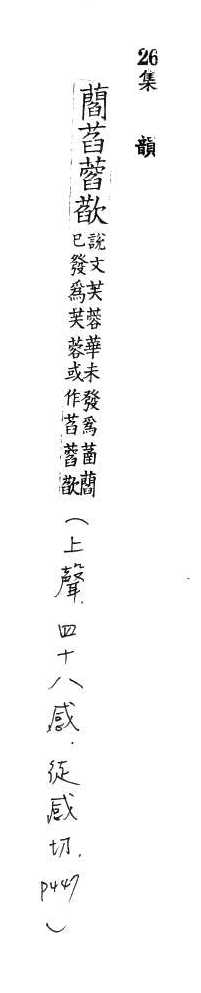 26集韻
𧂄萏
說文芙蓉華未發爲菡𧂄
已發爲芙蓉或作萏
（上聲．四十八感．徒感切．P447）